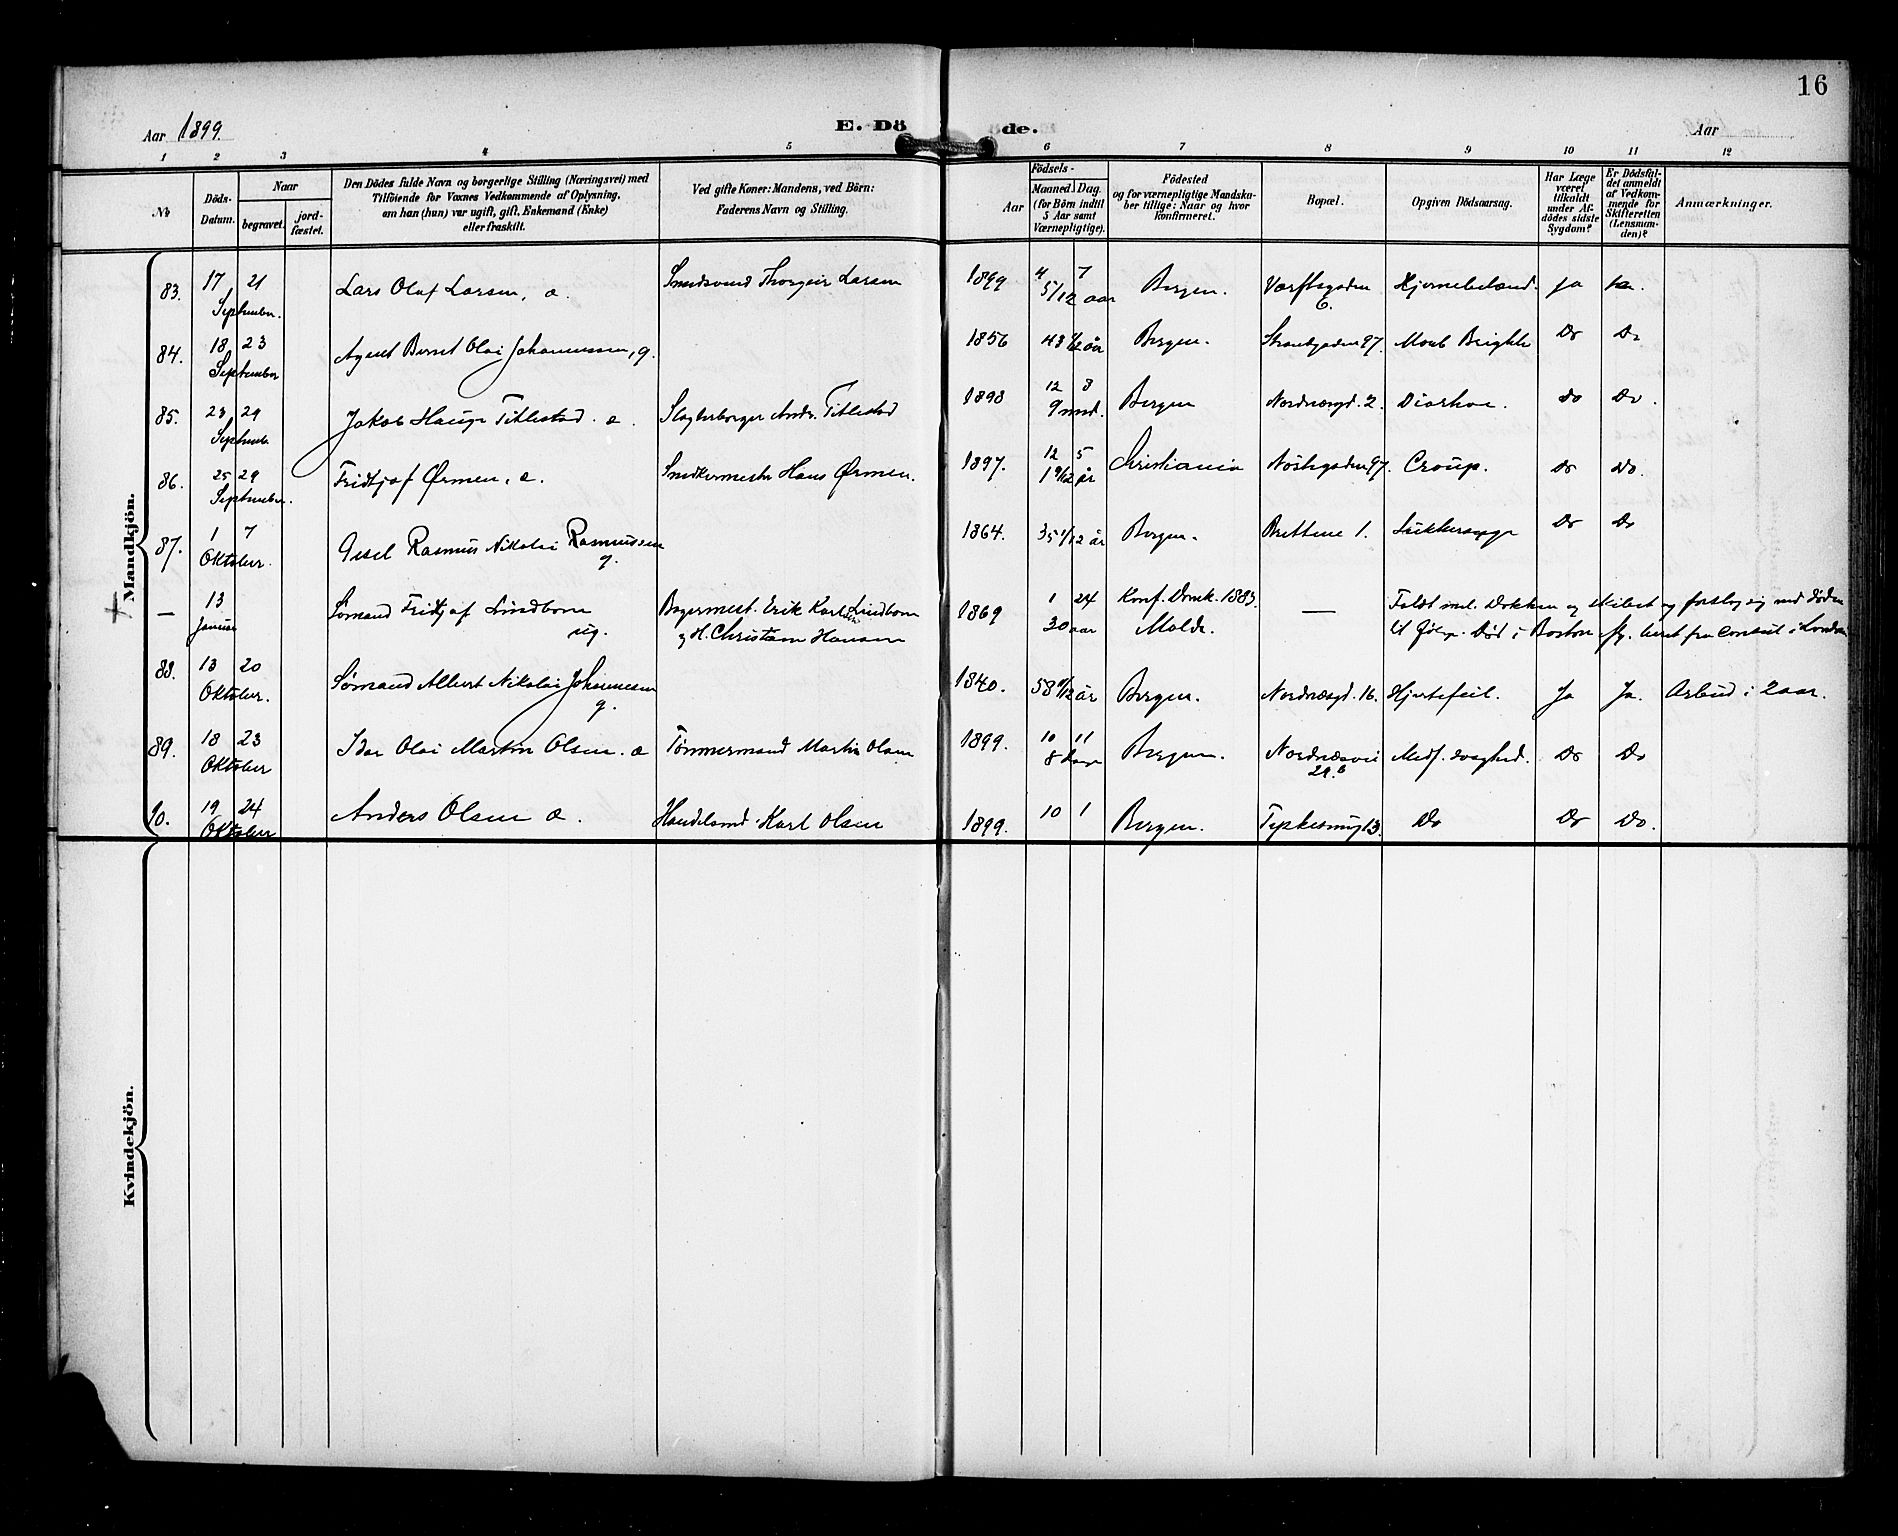 16
Aar 1899.
E. Dö
de.
Aar
1 2 3 4 5 6 7 8 9 10 11 12
No
Döds-
Datum.
Naar
begravet.
jord-
fæstet.
Den Dödes fulde Navn og borgerlige Stilling (Næringsvei) med
Tilföiende for Voxnes Vedkommende af Oplysning,
om han (hun) var ugift, gift, Enkemand (Enke)
eller fraskilt.
Ved gifte Koner: Mandens, ved Börn:
Faderens Navn og Stilling.
Födsels-
Aar
Maaned Dag.
(for Börn indtil
5 Aar samt
Værnepligtige).
Födested
og for værnepligtige Mandska-
ber tillige: Naar og hvor
konfirmeret.
Bopæl.
Opgiven Dödsaarsag.
Har Læge
været
tilkaldt
under Af-
dödes sidste
Sygdom?
Er Dödsfal-
det anmeldt
af Vedkom-
mende for
Skifteretten
(Lensman-
den)?
Anmærkninger.
Mandkjön.
83. 17 21 September. Lars Olaf Larsen, a. Smedsvend Thorgeir Larsen 1899 4 7 5/12 aar Bergen. Værftsgaden 6. Hjernebetænd. ja ja.
84. 18 23 September Agent Berent Olai Johannessen, g. 1856 43 1/2 år Bergen. Strandgaden 87. Morb Brightii Do Do
85. 23 29 Septemb. Jakob Hauge Titlestad. a. Slagterborger Andr. Titlestad 1898 12 8 9 mnd. Bergen Nordnæsgd. 2. Diarhoe. Do Do.
86. 25 29 September. Fridtjof Ørmen, a. Snedkermester Hans Ørmen. 1897. 12 5 1 9/12 år Christiania Nöstegaden 97. Croup. Do Do.
87. 1 7 Oktober. Rasmus Nikolai Rasmussen g. 1864. 35 1/12 år Bergen. 1. Sukkersyge Do Do
— 13 Januar Sømand Fridtjof Lindbom ug. Bagermest. Erik Karl Lindbom og H. Christiane Hansen 1869 1 24 30 aar Konf. Domk. 1883. Molde. — Faldt ml. Dokken og skibet og forslog sig ved Døden til følge. Død i Boston
88. 13 20 Oktober. Sømand Albert Nikolai Johannesen g. 1840. 58 11/12 år Bergen. Nordnæsgd. 16. Hjertefeil. Ja Ja. i 2 aar.
89. 18 23 Oktober Olai Martin Olsen. a Tømmermand Martin Olsen 1899. 10 11 8 Dage Bergen. Nordnæsvei 29.b Medf. svaghed. Do Do
90. 19 24 Oktober Anders Olsen a. Handelsmd. Karl Olsen 1899. 10 1 Bergen. 13. Do Do Do.
Kvindekjön.